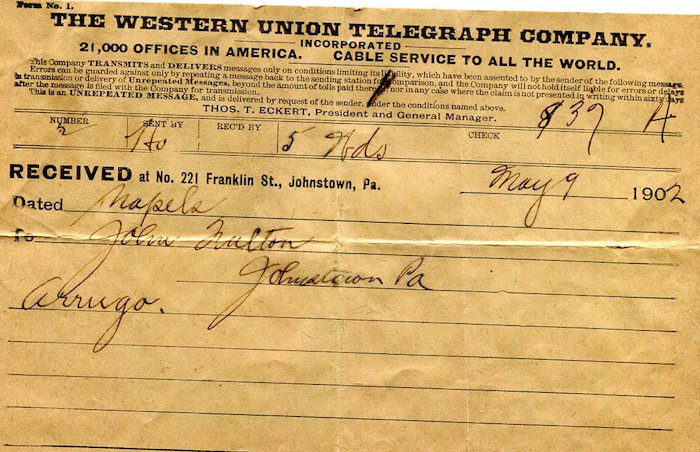 Form No. 1.
THE WESTERN UNION TELEGRAPH COMPANY.
INCORPORATED
21,000 OFFICES IN AMERICA. CABLE SERVICE TO ALL THE WORLD.
This Company TRANSMITS and DELIVERS messages only on conditions limiting its liability, which have been assented to by the sender of the following message.
Errors can be guarded against only by repeating a message back to the sending station for comparison, and the Company will not hold itself liable for errors or delays
in transmission or delivery of Unrepeated Messages, beyond the amount of tolls paid thereon, nor in any case where the claim is not presented in writing within sixty days
after the message is filed with the Company for transmission.
This is an UNREPEATED MESSAGE, and is delivered by request of the sender, under the conditions named above.
THOS. T. ECKERT, President and General Manager.
NUMBER SENT BY REC'D BY CHECK
2 Ho 5 Wds 837 A
RECEIVED at No. 221 Franklin St., Johnstown, Pa. May 9 1902
Dated Napels
To John Fulton
Johnstown Pa
Arrugo.